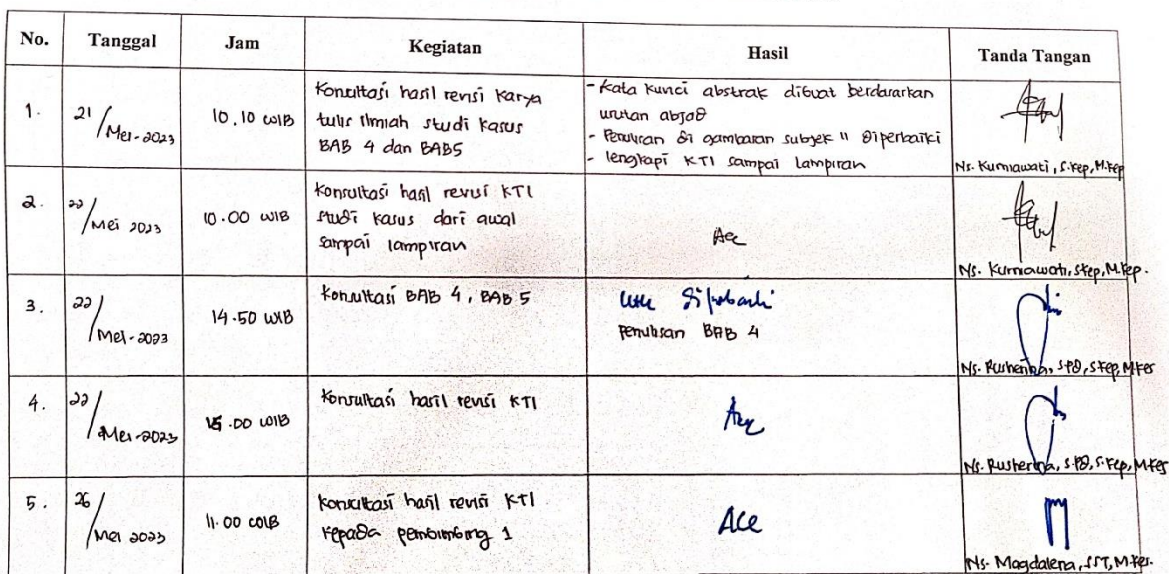 No. Tanggal Jam Kegiatan Hasil Tanda Tangan
1. 21/Mei-2023 10.10 WIB
Konsultasi hasil revisi Karya
tulis Ilmiah studi Kasus
BAB 4 dan BAB5
- Kata Kunci abstrak dibuat berdasarkan
urutan abjad
- Penulisan di gambaran subjek " diperbaiki
- lengkapi KTI sampai lampiran
Ns. Kurniawati, S.Kep, M.Kep
2. 22/Mei 2023 10.00 WIB
Konsultasi hasil revisi KTI
studi kasus dari awal
sampai lampiran
Acc
Ns. Kurniawati, S.Kep, M.Kep.
3. 22/Mei-2023 14.50 WIB
Konsultasi BAB 4, BAB 5
diperbaiki
Penulisan BAB 4
Ns. Rusherina, S.Pd, S.Kep, M.Kes
4. 22/Mei-2023 15.00 WIB
Konsultasi hasil revisi KTI
Acc
Ns. Rusherina, S.Pd, S.Kep, M.Kes
5. 26/Mei 2023 11.00 WIB
Konsultasi hasil revisi KTI
kepada pembimbing 1
Acc
Ns. Magdalena, SST, M.Kes.